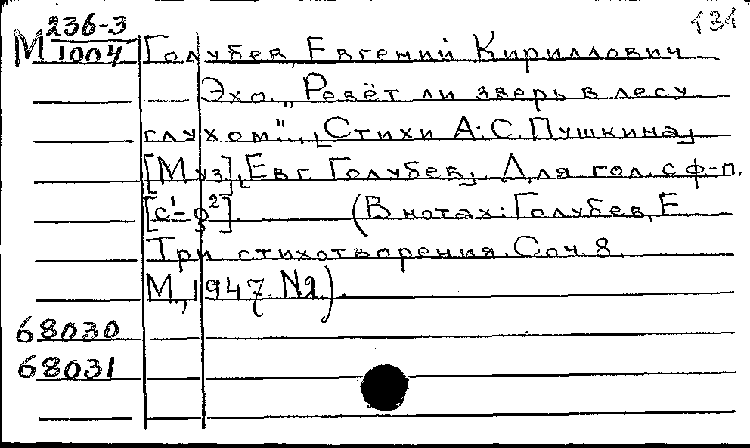 131
М 236-3
1004
Голубев, Евгений Кириллович
Эхо. „Ревёт ли зверь в лесу
глухом"... [Стихи А.С. Пушкина]
[Муз], [Евг. Голубев]. Для гол. с ф-п.
[c¹-g²]. (В нотах: Голубев, Е.
Три стихотворения. Соч. 8.
М., 1947, №2).
68030
68031